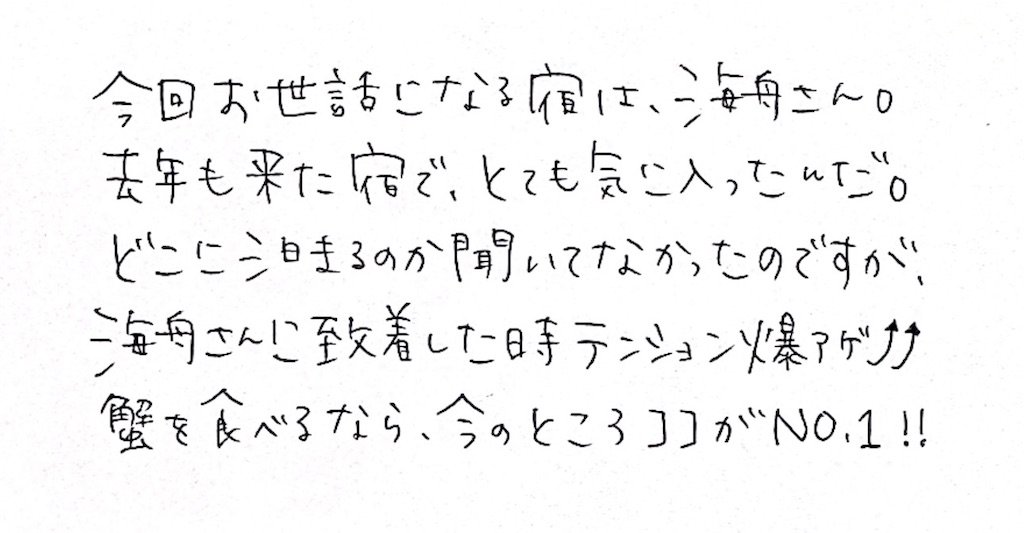 今回お世話になる宿は、海舟さん。
去年も来た宿で、とても気に入ったんだ。
どこに泊まるのか聞いてなかったのですが、
海舟さんに到着した時テンション爆アゲ⤴⤴
蟹を食べるなら、今のところココがNO.1!!